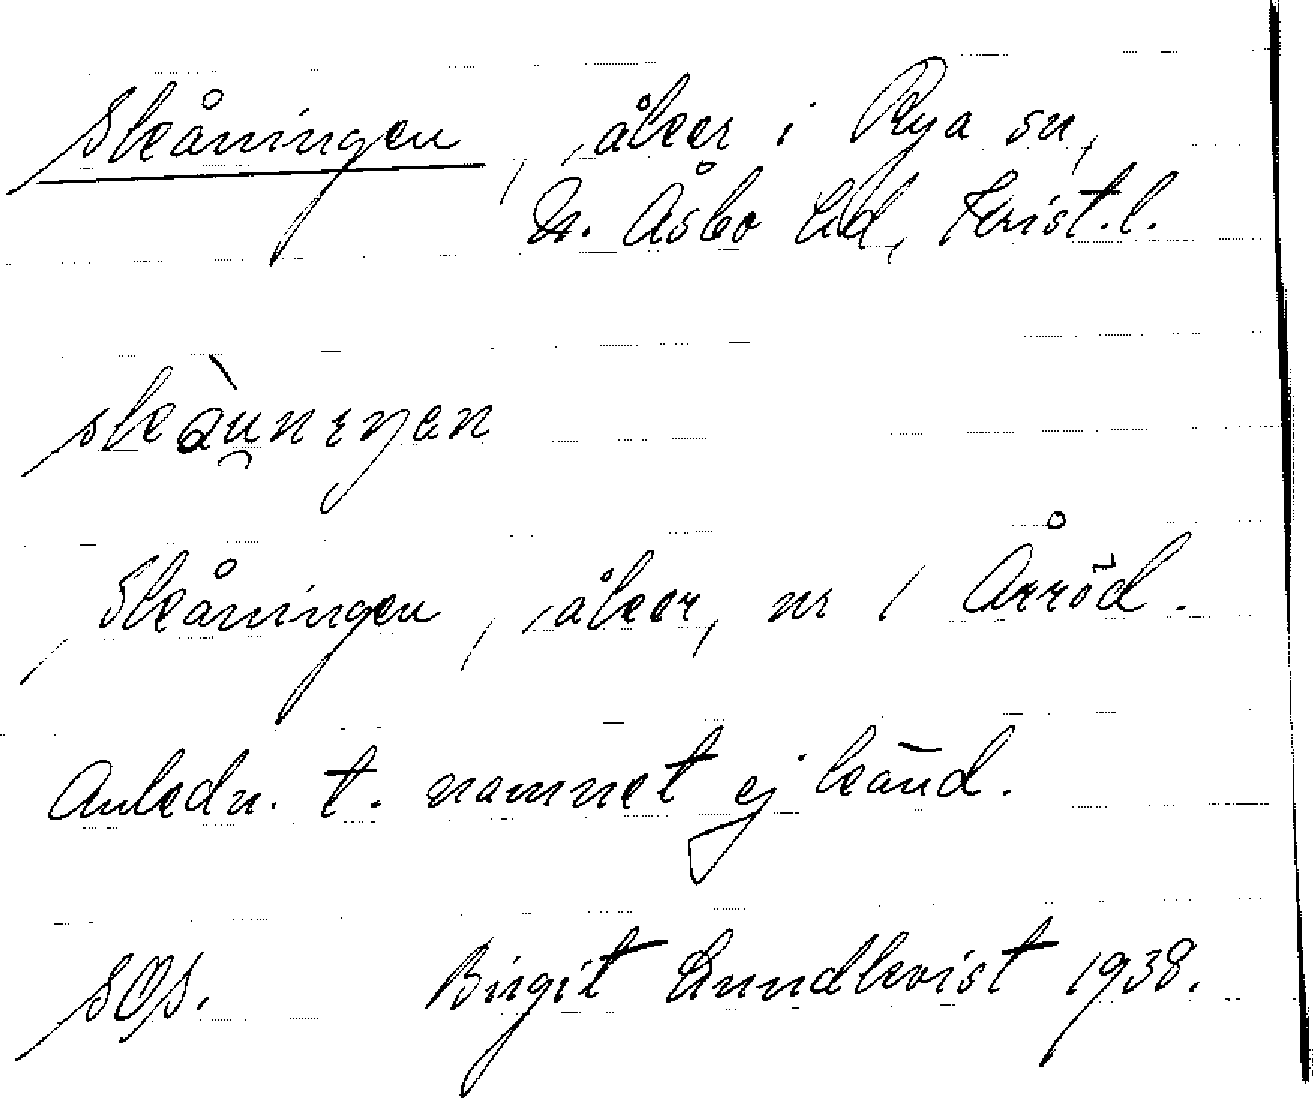 Skåningen, åker i Rya sn,
N. Åsbo hd, Krist.l.
Skåningen, åker, nr 1 Årröd.
Anledn. t. namnet ej känd.
SOS. Birgit Lundkvist 1938.